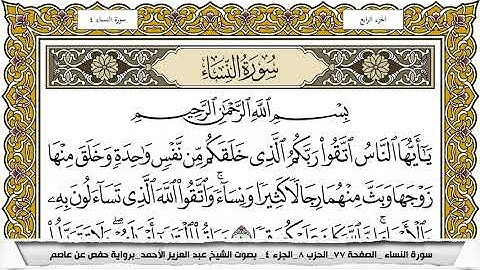 سورة النساء ٤
الجزء الرابع
سُورَةُ النِّسَاءِ
بِسْمِ اللَّهِ الرَّحْمَٰنِ الرَّحِيمِ
يَا أَيُّهَا النَّاسُ اتَّقُوا رَبَّكُمُ الَّذِي خَلَقَكُم مِّن نَّفْسٍ وَاحِدَةٍ وَخَلَقَ مِنْهَا
زَوْجَهَا وَبَثَّ مِنْهُمَا رِجَالًا كَثِيرًا وَنِسَاءً وَاتَّقُوا اللَّهَ الَّذِي تَسَاءَلُونَ بِهِ
سورة النساء _الصفحة ٧٧_الحزب ٨_الجزء ٤_ بصوت الشيخ عبد العزيز الأحمد_برواية حفص عن عاصم